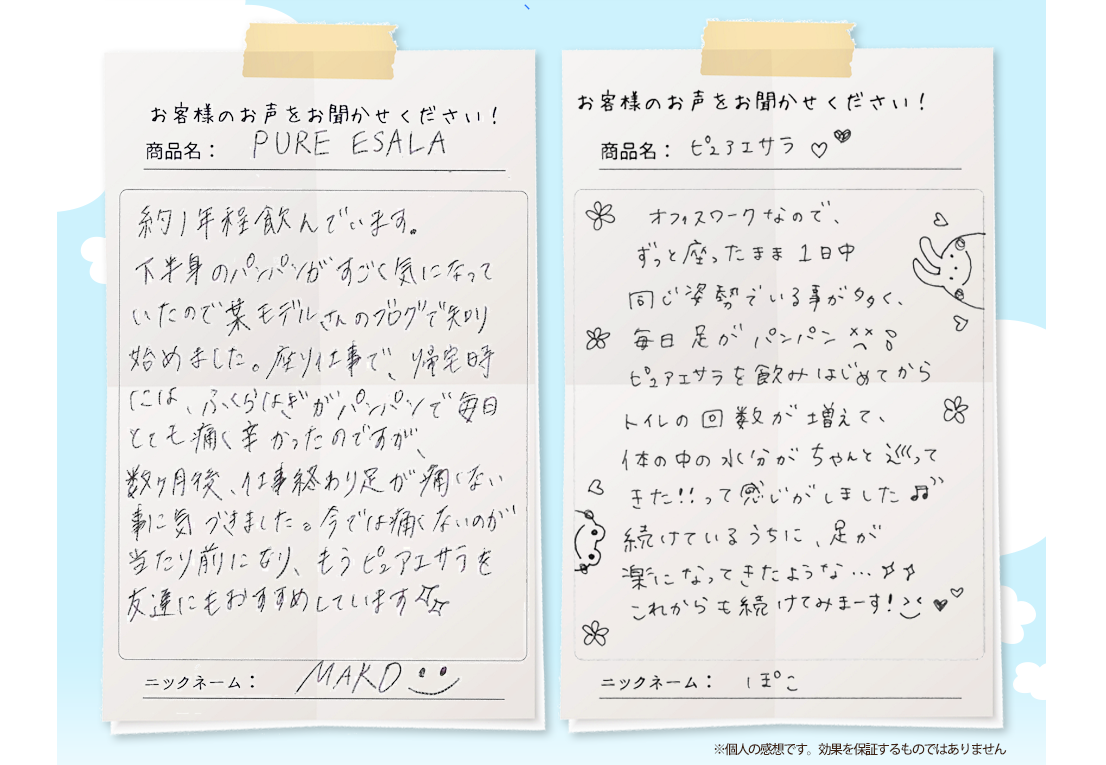 お客様のお声をお聞かせください！
商品名： PURE ESALA
約1年程飲んでいます。
下半身のパンパンがすごく気になって
いたので葉モデルさんのブログで知り
始めました。座り仕事で、帰宅時
には、ふくらはぎがパンパンで毎日
とても痛く辛かったのですが、
数ヶ月後、仕事終わり足が痛くない
事に気づきました。今では痛くないのが
当たり前になり、もうピュアエサラを
友達にもおすすめしています☆☆
ニックネーム： MAKO
お客様のお声をお聞かせください！
商品名： ピュアエサラ ♡♥
オフィスワークなので、
ずっと座ったまま1日中
同じ姿勢でいる事が多く、
毎日足がパンパン
ピュアエサラを飲みはじめてから
トイレの回数が増えて、
体の中の水分がちゃんと巡って
きた!!って感じがしました♫
続けているうちに、足が
楽になってきたような…
これからも続けてみまーす!
ニックネーム： ぽこ
※個人の感想です。効果を保証するものではありません